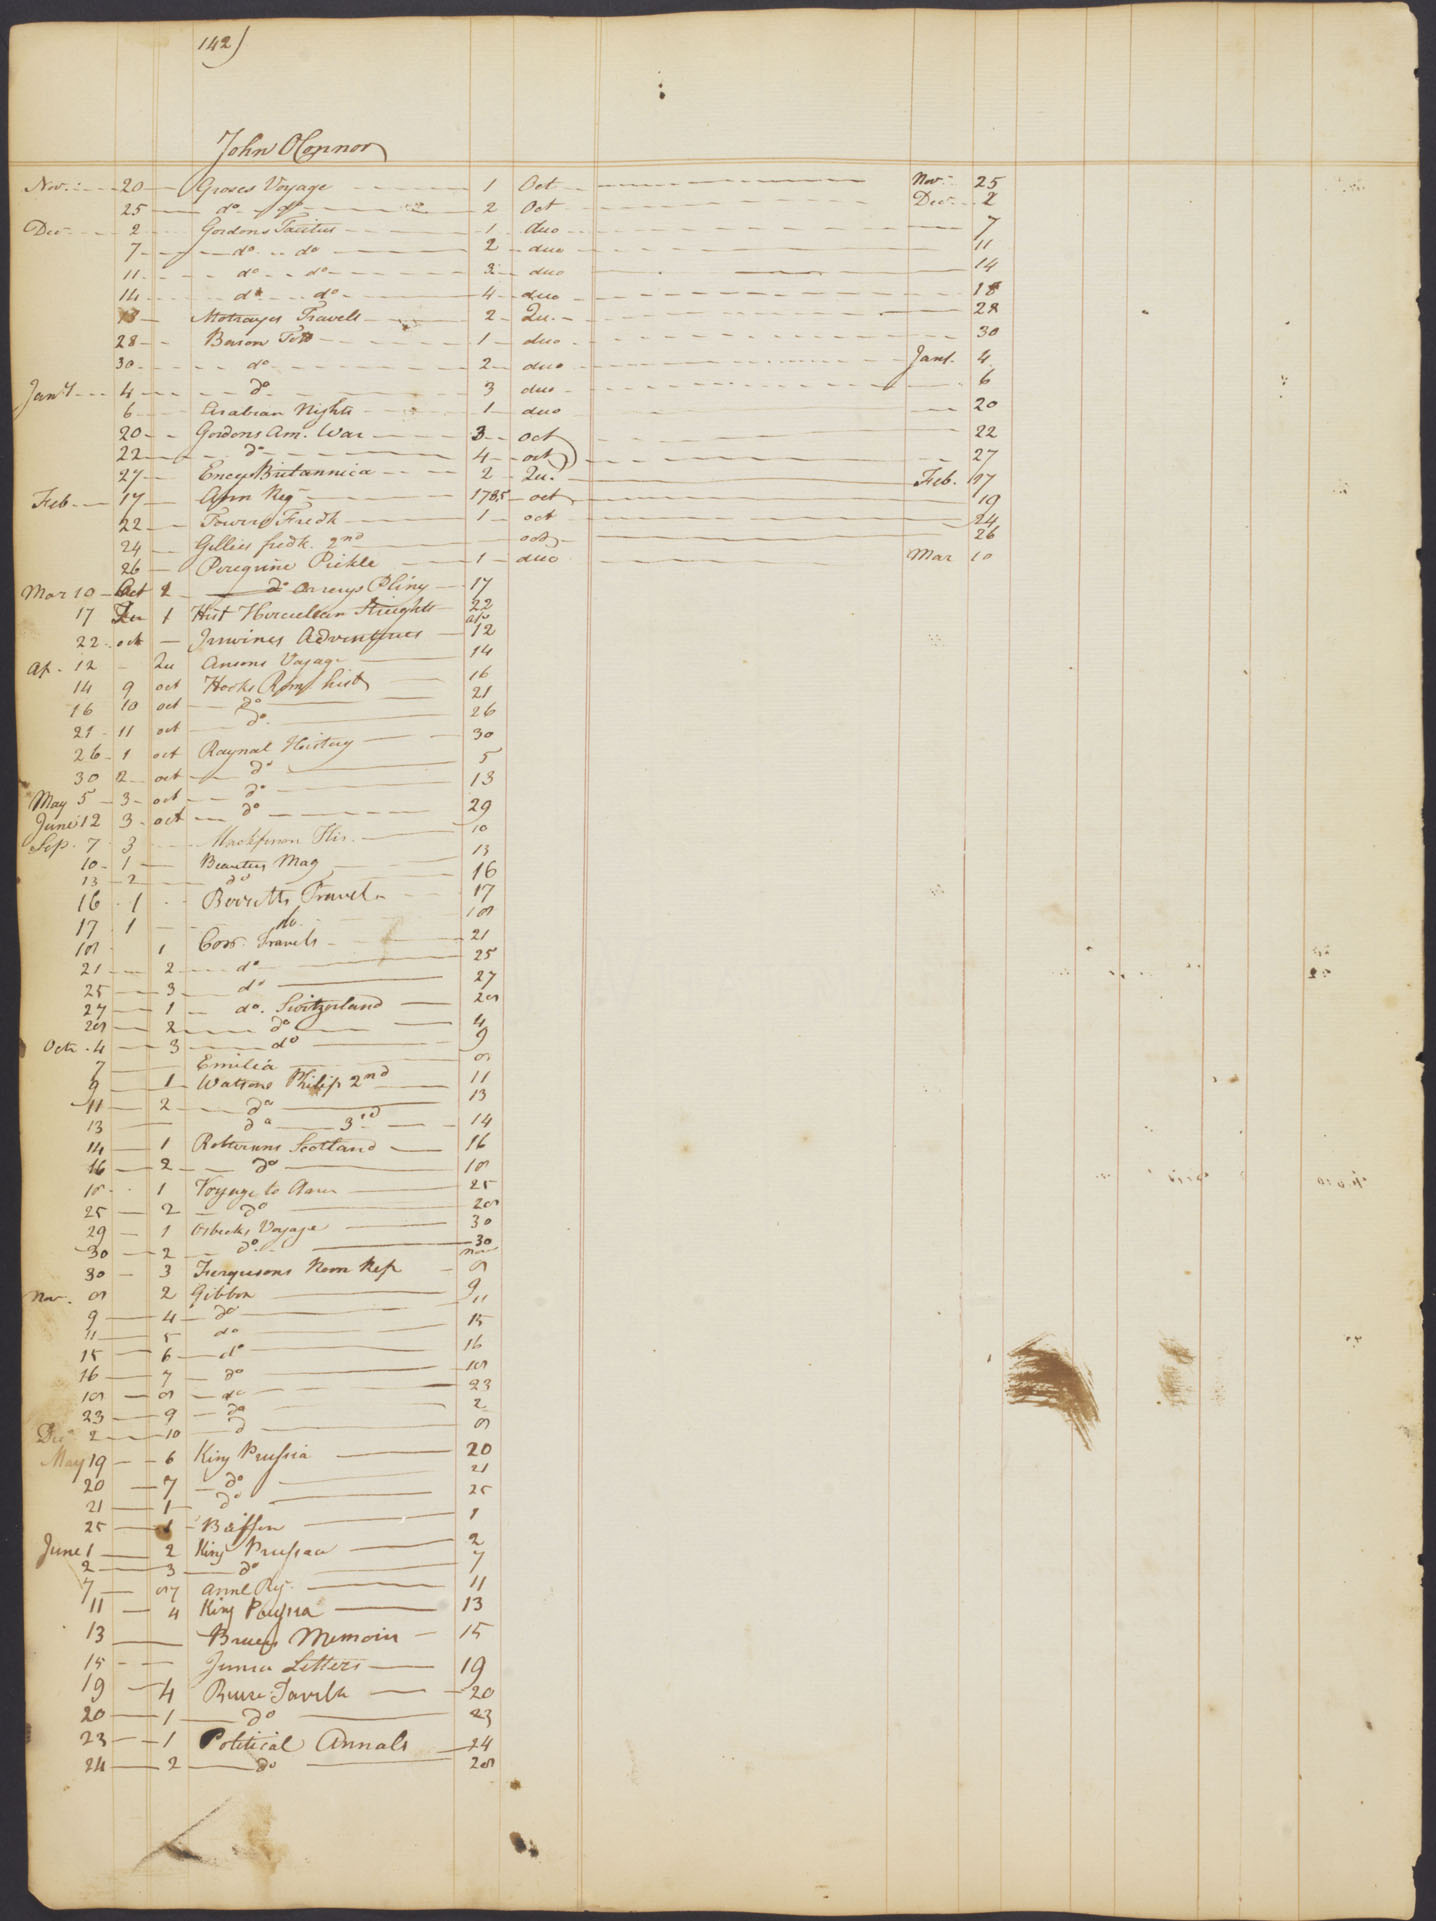 142)
John OConnor
Nov. 20 Groses Voyage 1 Oct Nov. 25
25 do do 2 Oct Dec 2
Dec 2 Gordons Tacitus 1 duo 7
7 do do 2 duo 11
11 do do 3 duo 14
14 do do 4 duo 18
18 Motrayes Travels 2 Qu. 28
28 Baron Tott 1 duo 30
30 do 2 duo Jany. 4
Jany 4 do 3 duo 6
6 Arabian Nights 1 duo 20
20 Gordons Am. War 3 oct 22
22 do 4 oct 27
27 Ency Britannica 2 Qu. Feb. 17
Feb. 17 Ann Reg 1785 oct 19
22 Towers Fredk 1 oct 24
24 Gillies fredk. 2nd oct 26
26 Peregrine Pickle 1 duo Mar 10
Mar 10 Oct 2 do Orrerys Pliny 17
17 1 Hist Herculean Straights 22
22 oct Irwines Adventures ap 12
Ap. 12 Qu Ansons Voyage 14
14 9 oct Hooks Rom hist 16
16 10 oct do 21
21 11 oct do 26
26 1 oct Raynal History 30
30 2 oct do 5
May 5 3 oct do 13
June 12 3 oct do 29
Sep. 7 3 Mackferson His. 10
10 1 Beauties Mag 13
13 2 do 16
16 1 Berretts Travels 17
17 1 do. 18
18 1 Coxs Travels 21
21 2 do 25
25 3 do 27
27 1 do. Switzerland 28
28 2 do 4
Oct. 4 3 do 9
7 Emilia 8
9 1 Watsons Philip 2nd 11
11 2 do 13
13 do 3rd 14
14 1 Robersons Scotland 16
16 2 do 18
18 1 Voyage to Amer 25
25 2 do 28
29 1 Osbecks Voyage 30
30 2 do 30
30 3 Fergusons Rom Rep nov 8
Nov. 8 2 Gibbon 9
9 4 do 11
11 5 do 15
15 6 do 16
16 7 do 18
18 8 do 23
23 9 do 2
Dec 2 10 d 8
May 19 6 King Prussia 20
20 7 do 21
21 1 do 25
25 1 Buffon 1
June 1 2 King Prussaa 2
2 3 do 7
7 87 Annl Rg. 11
11 4 King Prussia 13
13 Bruces Memoir 15
15 Junia Letters 19
19 4 20
20 1 do 23
23 1 Political Annals 24
24 2 do 28